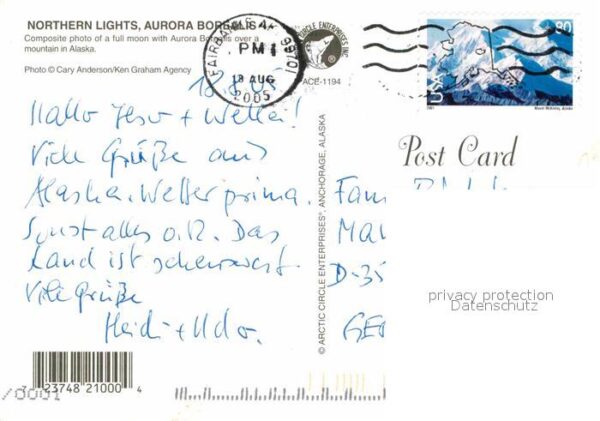 NORTHERN LIGHTS, AURORA BOREALIS
Composite photo of a full moon with Aurora Borealis over a
mountain in Alaska.
Photo © Cary Anderson/Ken Graham Agency
FAIRBANKS 99701
PM
18 AUG
2005
CIRCLE ENTERPRISES INC
ACE-1194
80
USA
2001 Mount McKinley, Alaska
Post Card
18.8.05
Hallo +
Viele Grüße aus
Alaska. Wetter prima.
Sonst alles o.K. Das
Land ist sehenswert.
Viele Grüße
Heidi + Udo.
© ARCTIC CIRCLE ENTERPRISES®, ANCHORAGE, ALASKA
Fam
D-35
GE
privacy protection
Datenschutz
7 23748 21000 4